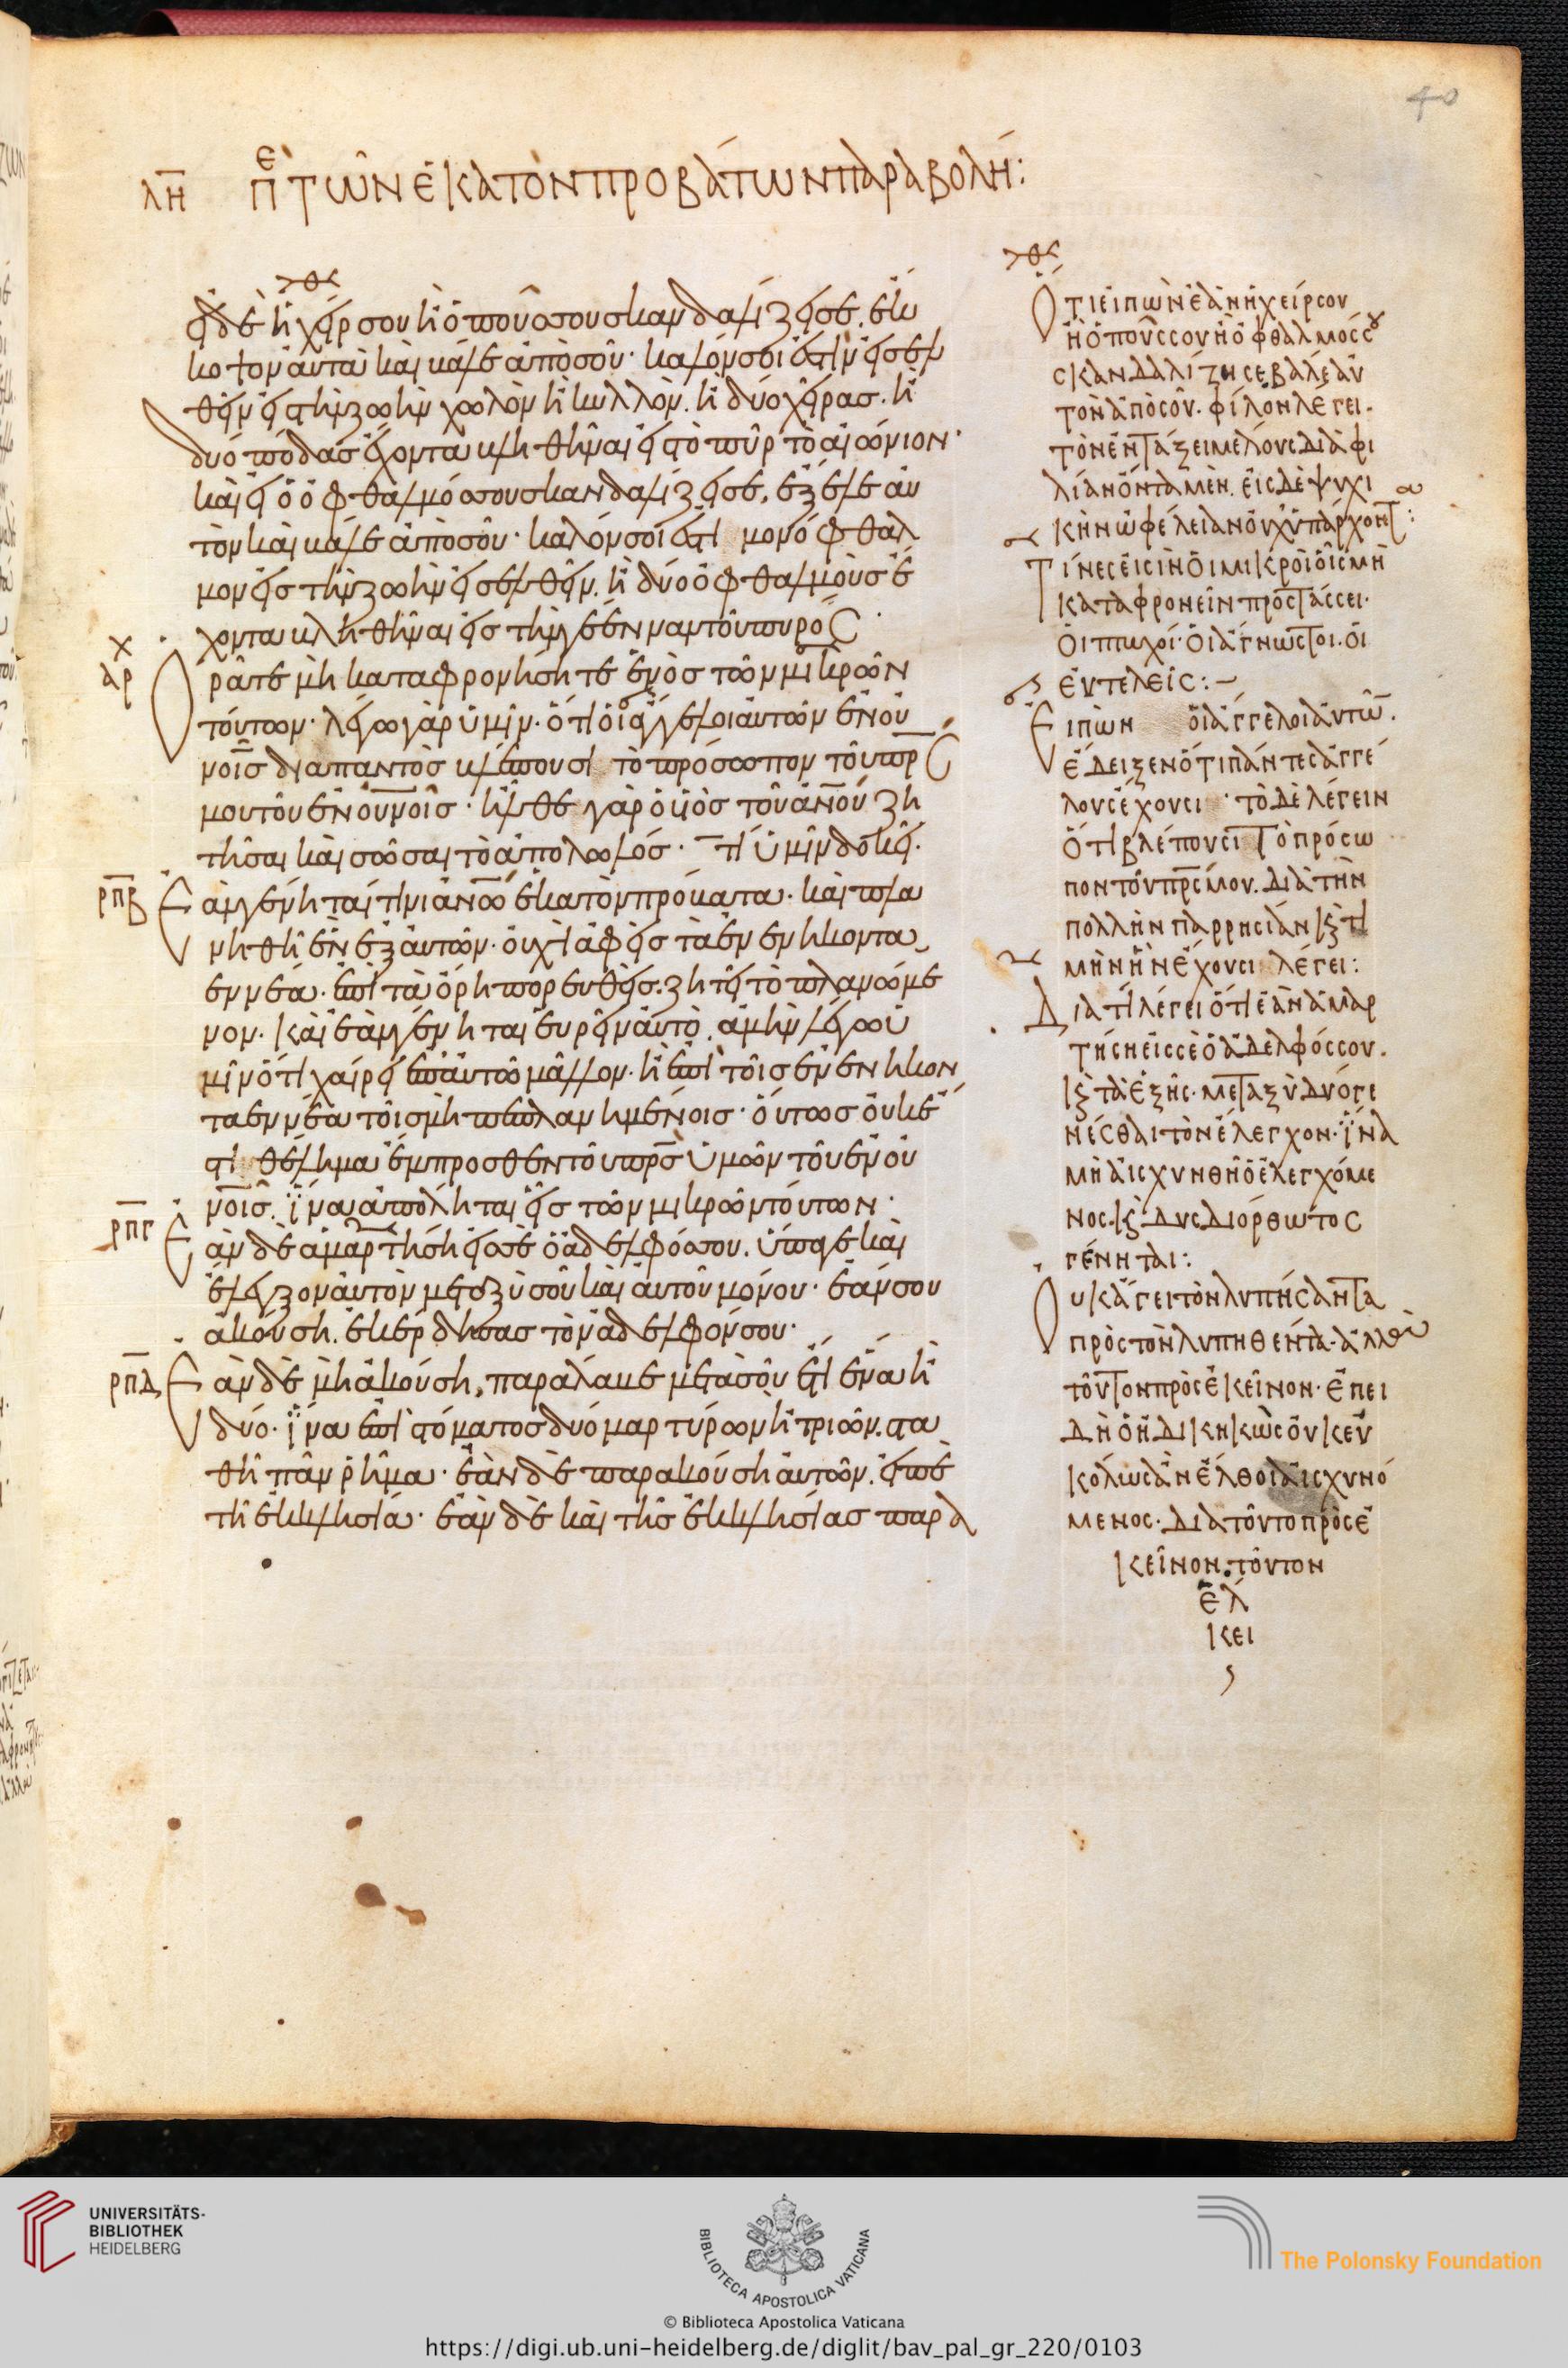 40
λη περὶ τῶν ἑκατὸν προβάτων παραβολή:
εἰ δὲ ἡ χείρ σου ἢ ὁ πούς σου σκανδαλίζει σε. ἔκ
κοψον αὐτὰ καὶ βάλε ἀπὸ σοῦ· καλόν σοι ἐστὶν εἰσελ
θεῖν εἰς τὴν ζωὴν χωλὸν ἢ κυλλὸν. ἢ δύο χεῖρας. ἢ
δύο πόδας ἔχοντα βληθῆναι εἰς τὸ πῦρ τὸ αἰώνιον·
καὶ εἰ ὁ ὀφθαλμός σου σκανδαλίζει σε, ἔξελε αὐ
τὸν καὶ βάλε ἀπὸ σοῦ· καλόν σοι ἐστὶ μονόφθαλ
μον εἰς τὴν ζωὴν εἰσελθεῖν. ἢ δύο ὀφθαλμοὺς ἔ
χοντα βληθῆναι εἰς τὴν γέενναν τοῦ πυρός·
ὁρᾶτε μὴ καταφρονήσητε ἑνὸς τῶν μικρῶν
τούτων· λέγω γὰρ ὑμῖν· ὅτι οἱ ἄγγελοι αὐτῶν ἐν οὐ
νοῖς διαπαντὸς βλέπουσι τὸ πρόσωπον τοῦ πρς
μου τοῦ ἐν οὐνοῖς· ἦλθε γὰρ ὁ υἱὸς τοῦ ἀνου ζη
τῆσαι καὶ σῶσαι τὸ ἀπολωλός· τί ὑμῖν δοκεῖ·
ρπβ ἐὰν γένηται τινι ἀνω ἑκατὸν πρόβατα· καὶ πλα
νηθῆ ἓν ἐξ αὐτῶν· οὐχὶ ἀφεὶς τὰ ἐνενήκοντα
εννέα. ἐπὶ τὰ ὄρη πορευθεὶς. ζητεῖ τὸ πλανώμε
νον. καὶ ἐὰν γένηται εὑρεῖν αὐτὸ. ἀμὴν λέγω ὑ
μῖν ὅτι χαίρει ἐπ αὐτῶ μᾶλλον. ἢ ἐπὶ τοῖς ἐνενήκον
τα εννέα τοῖς μὴ πεπλανημένοις· οὕτως οὐκ ἔ
στι θέλημα ἔμπροσθεν τοῦ πρς ὑμῶν τοῦ ἐν οὐ
νοῖς. ἵνα ἀπόληται εἷς τῶν μικρῶν τούτων·
ρπγ ἐὰν δὲ ἁμαρτήση εἰς σὲ ὁ ἀδελφός σου. ὕπαγε καὶ
ἔλεγξον αὐτὸν μεταξὺ σοῦ καὶ αὐτοῦ μόνου· ἐάν σου
ἀκούση. ἐκέρδησας τὸν ἀδελφόν σου·
ρπδ ἐὰν δὲ μὴ ἀκούση, παράλαβε μετὰ σοῦ ἔτι ἕνα ἢ
δύο· ἵνα ἐπὶ στόματος δύο μαρτύρων ἢ τριῶν. στα
θῆ πᾶν ῥῆμα· ἐὰν δὲ παρακούση αὐτῶν. εἰπὲ
τῆ ἐκκλησία· ἐὰν δὲ καὶ τῆς ἐκκλησίας παρα
Ὅτι εἰπὼν ἐὰν ἡ χείρ σου
ἢ ὁ πούς σου ἢ ὁ ὀφθαλμός σου
σκανδαλίζη σε βάλε αὐ
τὸν ἀπὸ σοῦ. φίλον λέγει.
τὸν ἐν τάξει μέλους διὰ φι
λίαν ὄντα μὲν. εἰς δὲ ψυχι
κὴν ὠφέλειαν οὐχ ὑπάρχοντα:
Τίνες εἰσὶν οἱ μικροὶ οἷς μὴ
καταφρονεῖν προστάσσει·
οἱ πτωχοί· οἱ ἄγνωστοι. οἱ
εὐτελεῖς:
Εἰπὼν οἱ ἄγγελοι αὐτῶν.
ἔδειξεν ὅτι πάντες ἀγγέ
λους ἔχουσι· τὸ δὲ λέγειν
ὅτι βλέπουσι τὸ πρόσω
πον τοῦ πρς μου. διὰ τὴν
πολλὴν παρρησίαν καὶ τι
μὴν ἣν ἔχουσι λέγει:
Διατί λέγει ὅτι ἐὰν ἁμαρ
τήση εἰς σὲ ὁ ἀδελφός σου.
καὶ τὰ ἑξῆς. μεταξὺ δύο γι
νέσθαι τὸν ἔλεγχον· ἵνα
μὴ αἰσχυνθῆ ὁ ἐλεγχόμε
νος. καὶ δυσδιόρθωτος
γένηται:
Οὐκ ἄγει τὸν λυπήσαντα
πρὸς τὸν λυπηθέντα. ἀλλὰ
τοῦτον πρὸς ἐκεῖνον. ἐπει
δὴ ὁ ἠδικηκὼς οὐκ εὐ
κόλως ἂν ἔλθοι αἰσχυνό
μενος· διὰ τοῦτο πρὸς ἐ
κεῖνον. τοῦτον
ἕλ
κει
UNIVERSITÄTS-
BIBLIOTHEK
HEIDELBERG
BIBLIOTECA APOSTOLICA VATICANA
The Polonsky Foundation
© Biblioteca Apostolica Vaticana
https://digi.ub.uni-heidelberg.de/diglit/bav_pal_gr_220/0103